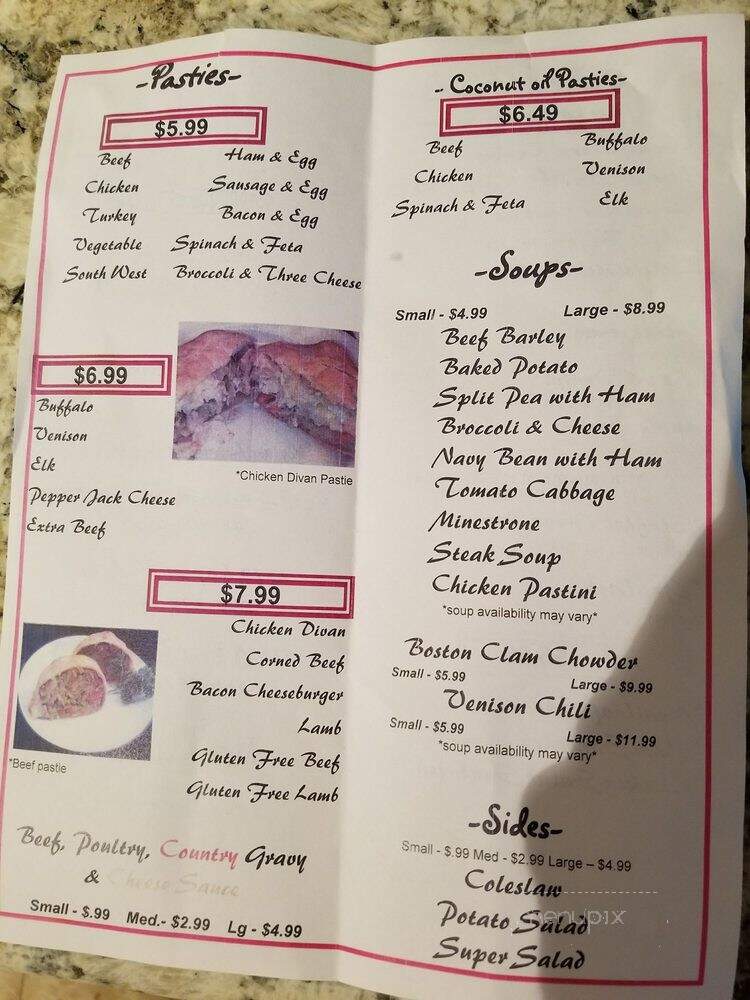 -Pasties-
$5.99
Beef Ham & Egg
Chicken Sausage & Egg
Turkey Bacon & Egg
Vegetable Spinach & Feta
South West Broccoli & Three Cheese
$6.99
Buffalo
Venison
Elk
Pepper Jack Cheese
Extra Beef
*Chicken Divan Pastie
$7.99
Chicken Divan
Corned Beef
Bacon Cheeseburger
Lamb
Gluten Free Beef
Gluten Free Lamb
*Beef pastie
Beef, Poultry, Country Gravy
& Cheese Sauce
Small - $.99 Med.- $2.99 Lg - $4.99
- Coconut oil Pasties-
$6.49
Beef Buffalo
Chicken Venison
Spinach & Feta Elk
-Soups-
Small - $4.99 Large - $8.99
Beef Barley
Baked Potato
Split Pea with Ham
Broccoli & Cheese
Navy Bean with Ham
Tomato Cabbage
Minestrone
Steak Soup
Chicken Pastini
*soup availability may vary*
Boston Clam Chowder
Small - $5.99 Large - $9.99
Venison Chili
Small - $5.99 Large - $11.99
*soup availability may vary*
-Sides-
Small - $.99 Med - $2.99 Large – $4.99
Coleslaw
Potato Salad
Super Salad
menupix